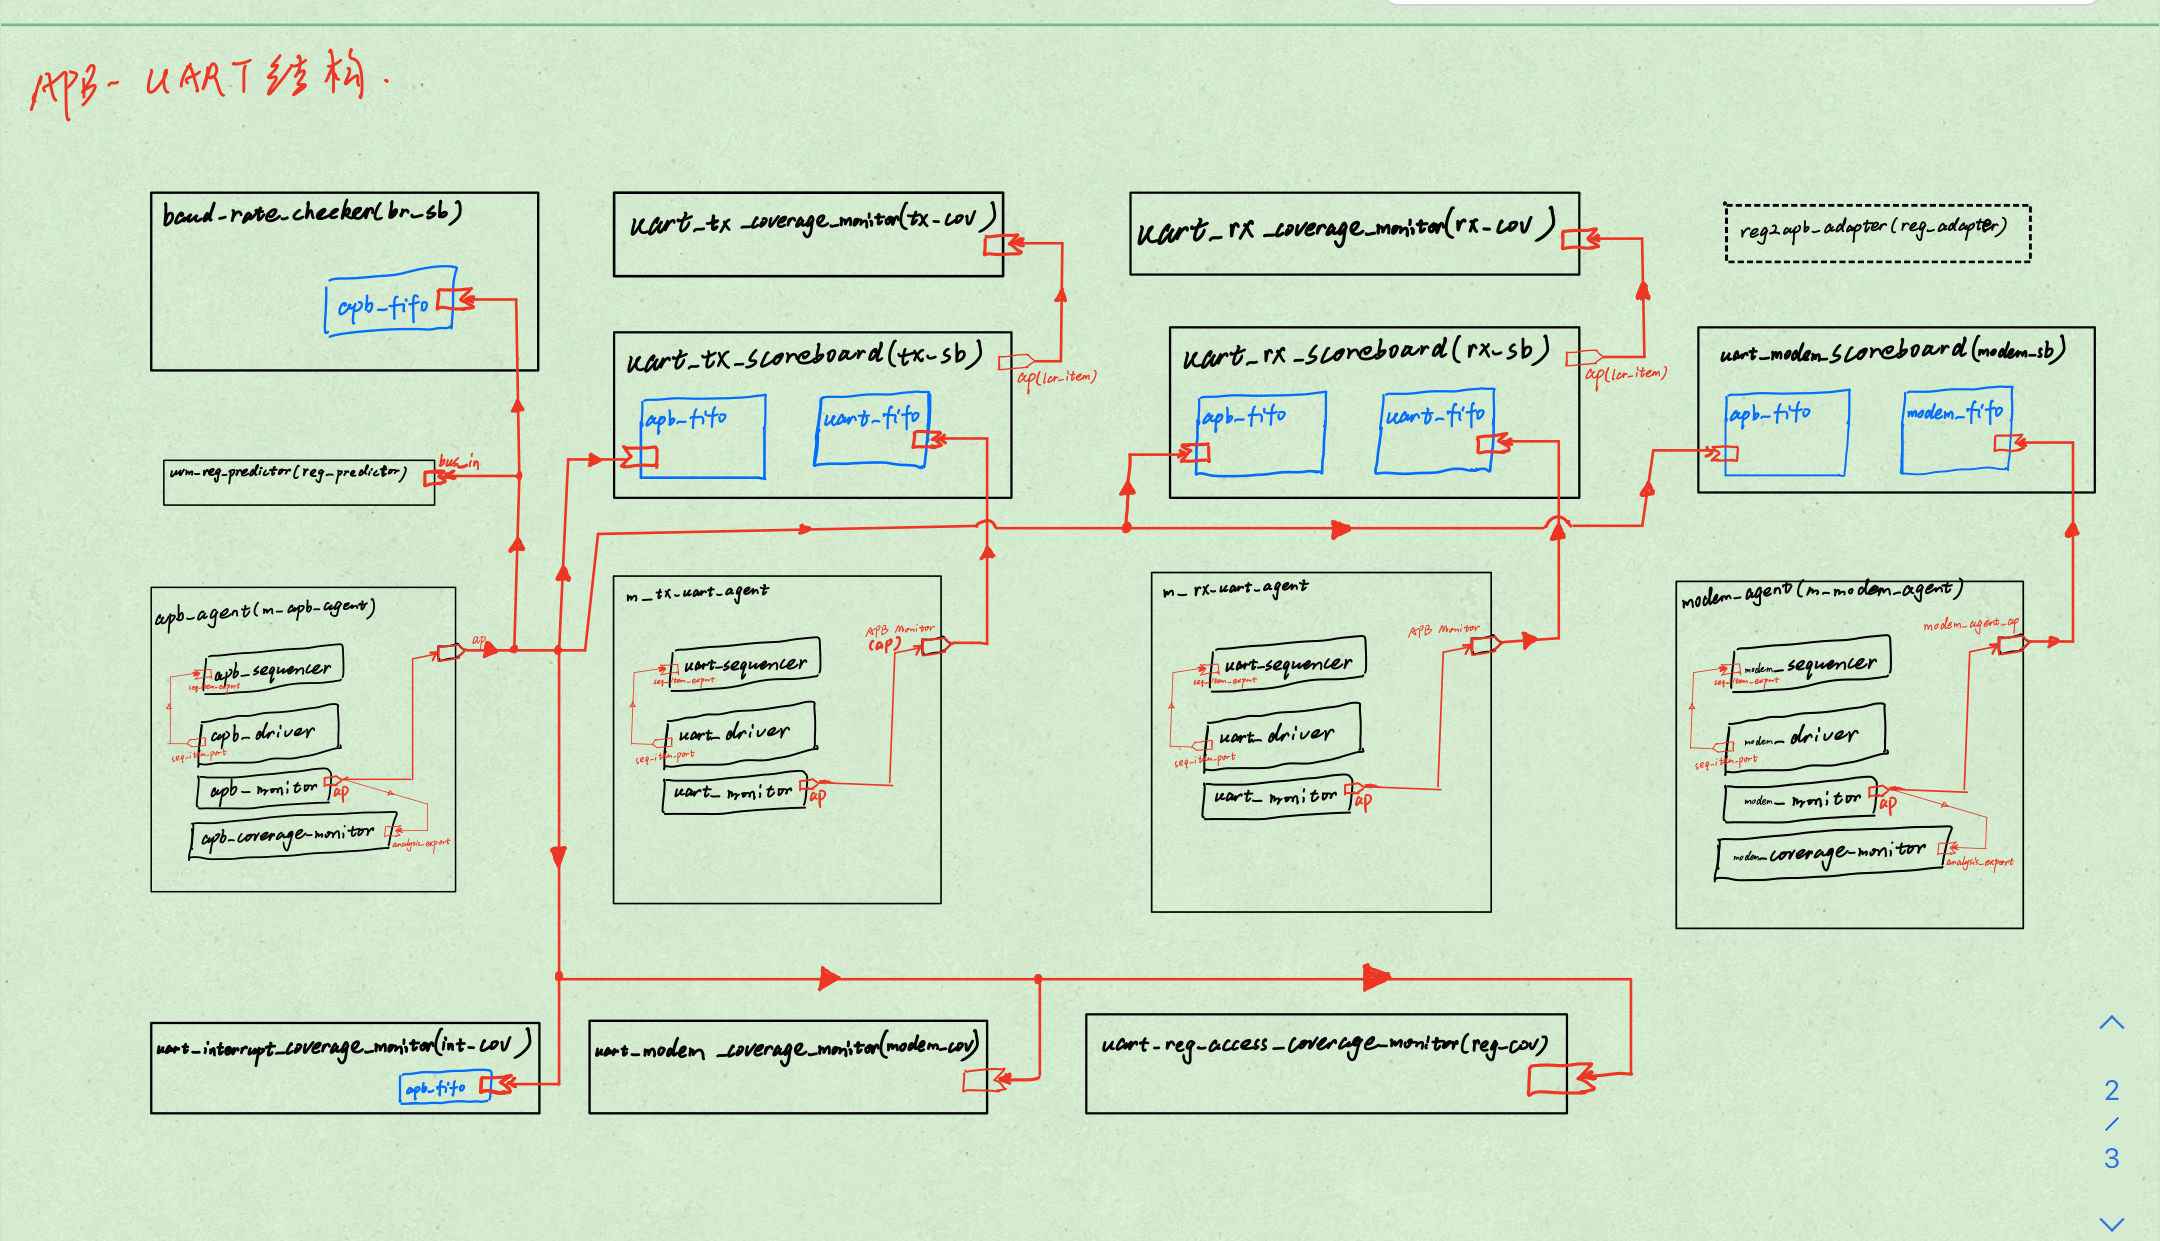 APB-UART结构.
baud_rate_checker(br_sb)
apb_fifo
uart_tx_coverage_monitor(tx_cov)
uart_rx_coverage_monitor(rx_cov)
reg2apb_adapter(reg_adapter)
uart_tx_scoreboard(tx_sb)
ap(lcr_item)
apb_fifo
uart_fifo
uart_rx_scoreboard(rx_sb)
ap(lcr_item)
apb_fifo
uart_fifo
uart_modem_scoreboard(modem_sb)
apb_fifo
modem_fifo
uvm_reg_predictor(reg_predictor)
bus_in
apb_agent(m_apb_agent)
ap
apb_sequencer
seq_item_export
apb_driver
seq_item_port
apb_monitor
ap
apb_coverage_monitor
analysis_export
m_tx_uart_agent
APB Monitor
(ap)
uart_sequencer
seq_item_export
uart_driver
seq_item_port
uart_monitor
ap
m_rx_uart_agent
APB Monitor
uart_sequencer
seq_item_export
uart_driver
seq_item_port
uart_monitor
ap
modem_agent(m_modem_agent)
modem_agent_ap
modem_sequencer
seq_item_export
modem_driver
seq_item_port
modem_monitor
ap
modem_coverage_monitor
analysis_export
uart_interrupt_coverage_monitor(int_cov)
apb_fifo
uart_modem_coverage_monitor(modem_cov)
uart_reg_access_coverage_monitor(reg_cov)
2
/
3